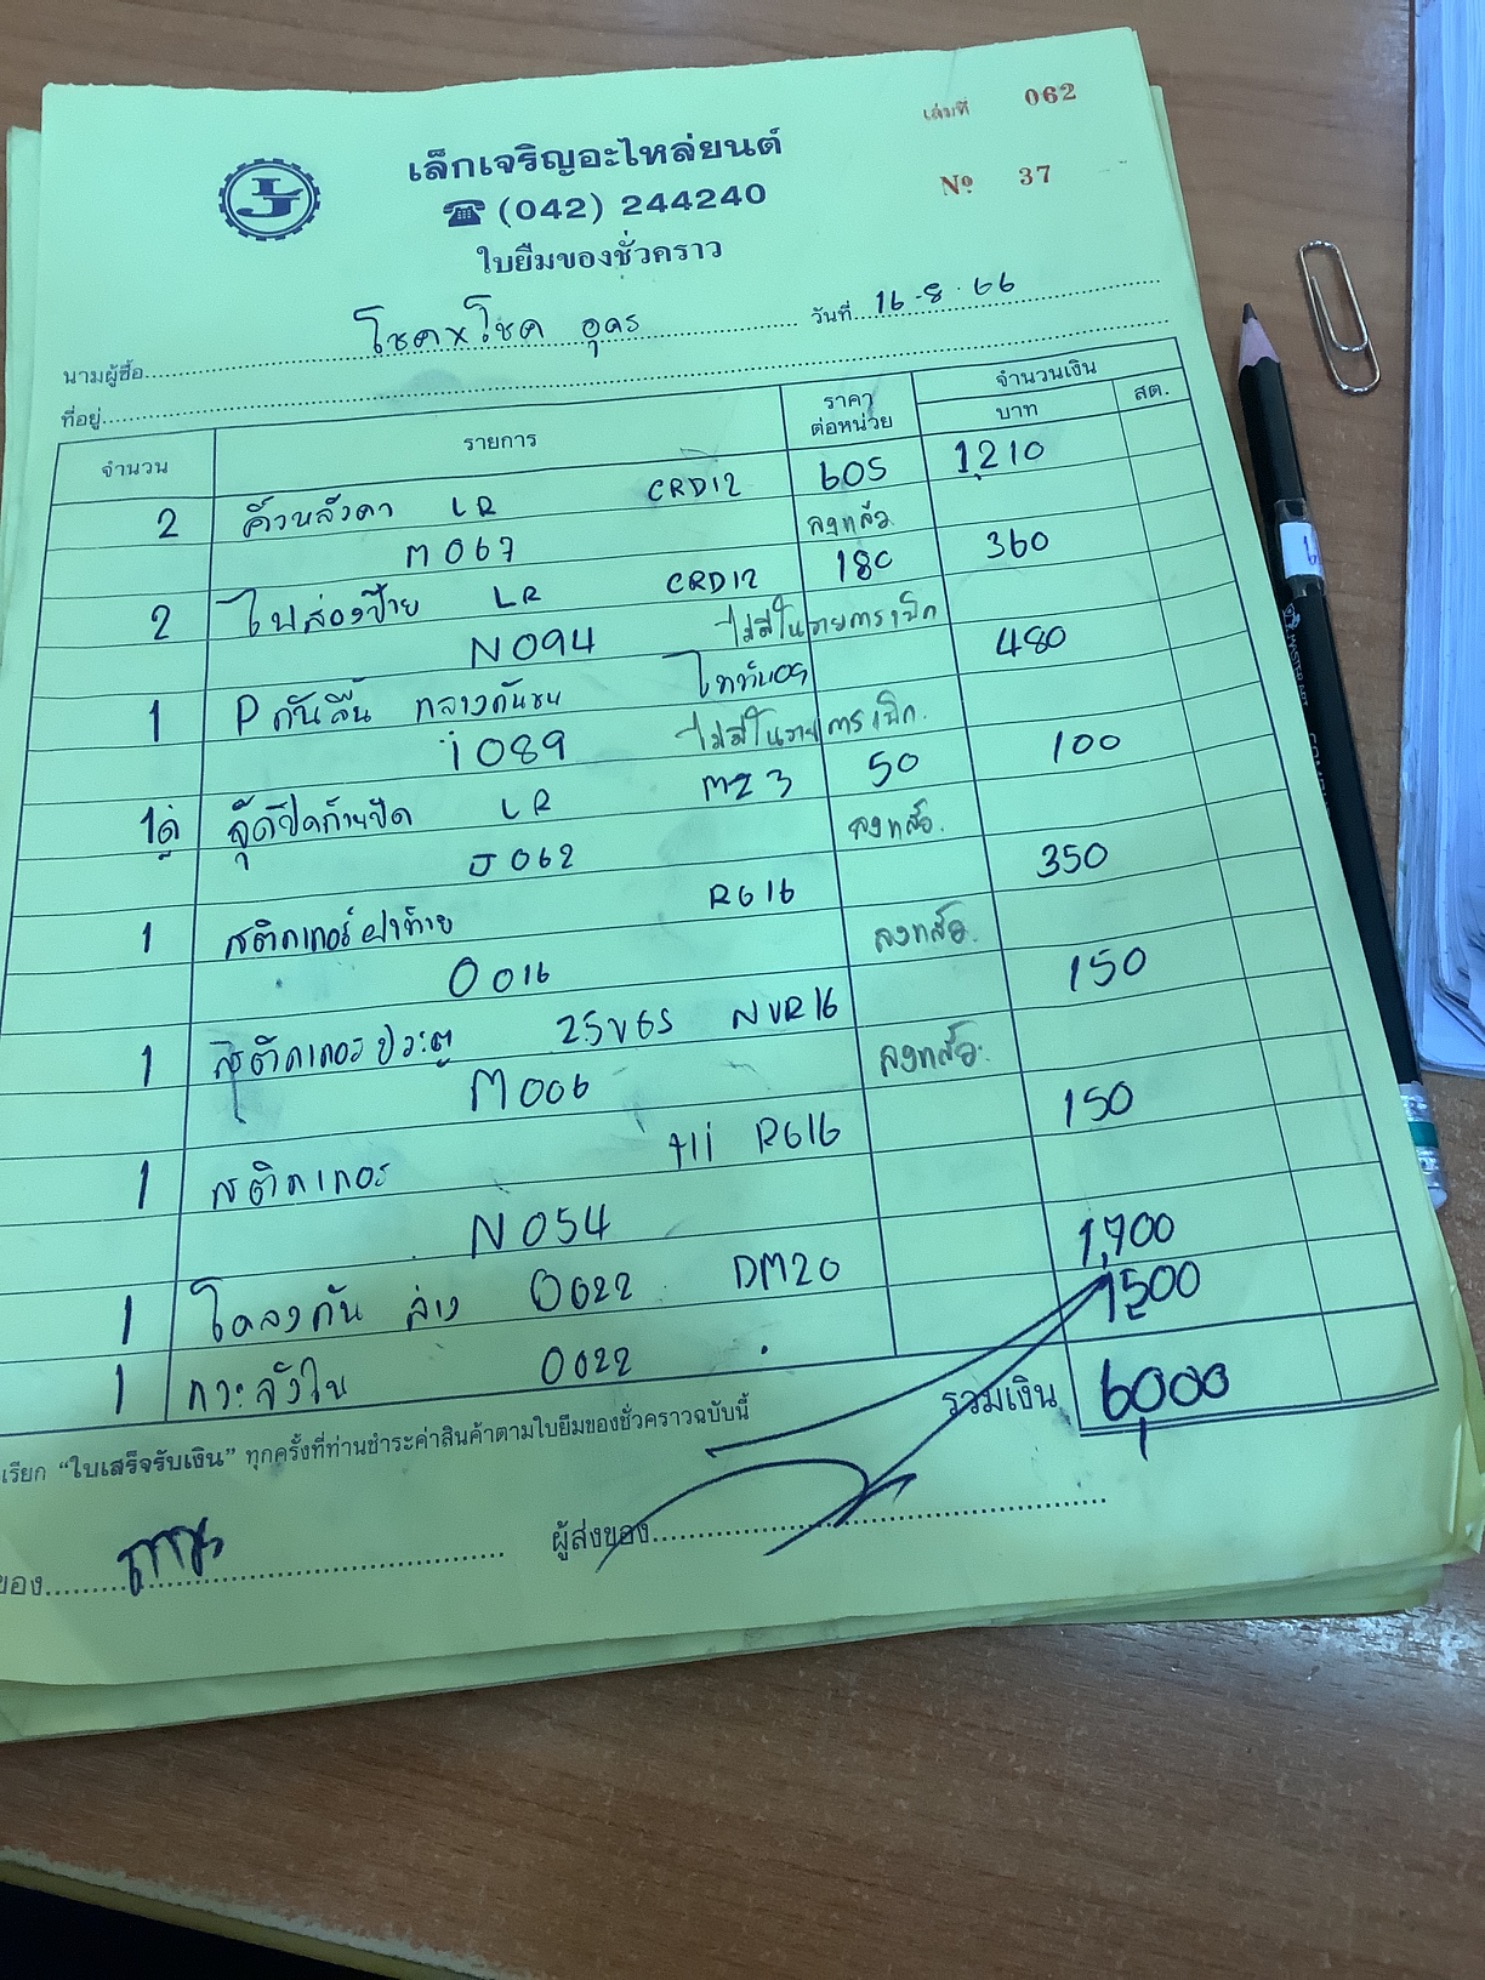 เล่มที่ 062
เล็กเจริญอะไหล่ยนต์
Nº 37
☎ (042) 244240
ใบยืมของชั่วคราว
นามผู้ซื้อ โชคxโชค อุดร วันที่ 16-8-66
ที่อยู่
จำนวน รายการ ราคาต่อหน่วย จำนวนเงิน บาท สต.
2 คิ้วหลังคา LR CRD12 605 1,210
M067 ลงแล้ว
2 ไฟส่องป้าย LR CRD12 180 360
N094 ไม่มีในรายการเบิก
1 P กันลื่น กลางกันชน ไททันอล 480
i089 ไม่มีในรายการเบิก.
1คู่ จุ๊ดปิดก้านปัด LR MZ3 50 100
J062 ลงแล้ว.
1 สติกเกอร์ฝาท้าย RG16 350
O016 ลงแล้ว.
1 สติกเกอรประตู 2.5V6S NVR16 150
M006 ลงแล้ว.
1 สติกเกอร Hi RG16 150
N054
1 โคลงกัน ล่าง O022 DM20 1,700
1 กระจังใน O022 1500
รวมเงิน 6000
เรียก “ใบเสร็จรับเงิน” ทุกครั้งที่ท่านชำระค่าสินค้าตามใบยืมของชั่วคราวฉบับนี้
ของ ผู้ส่งของ